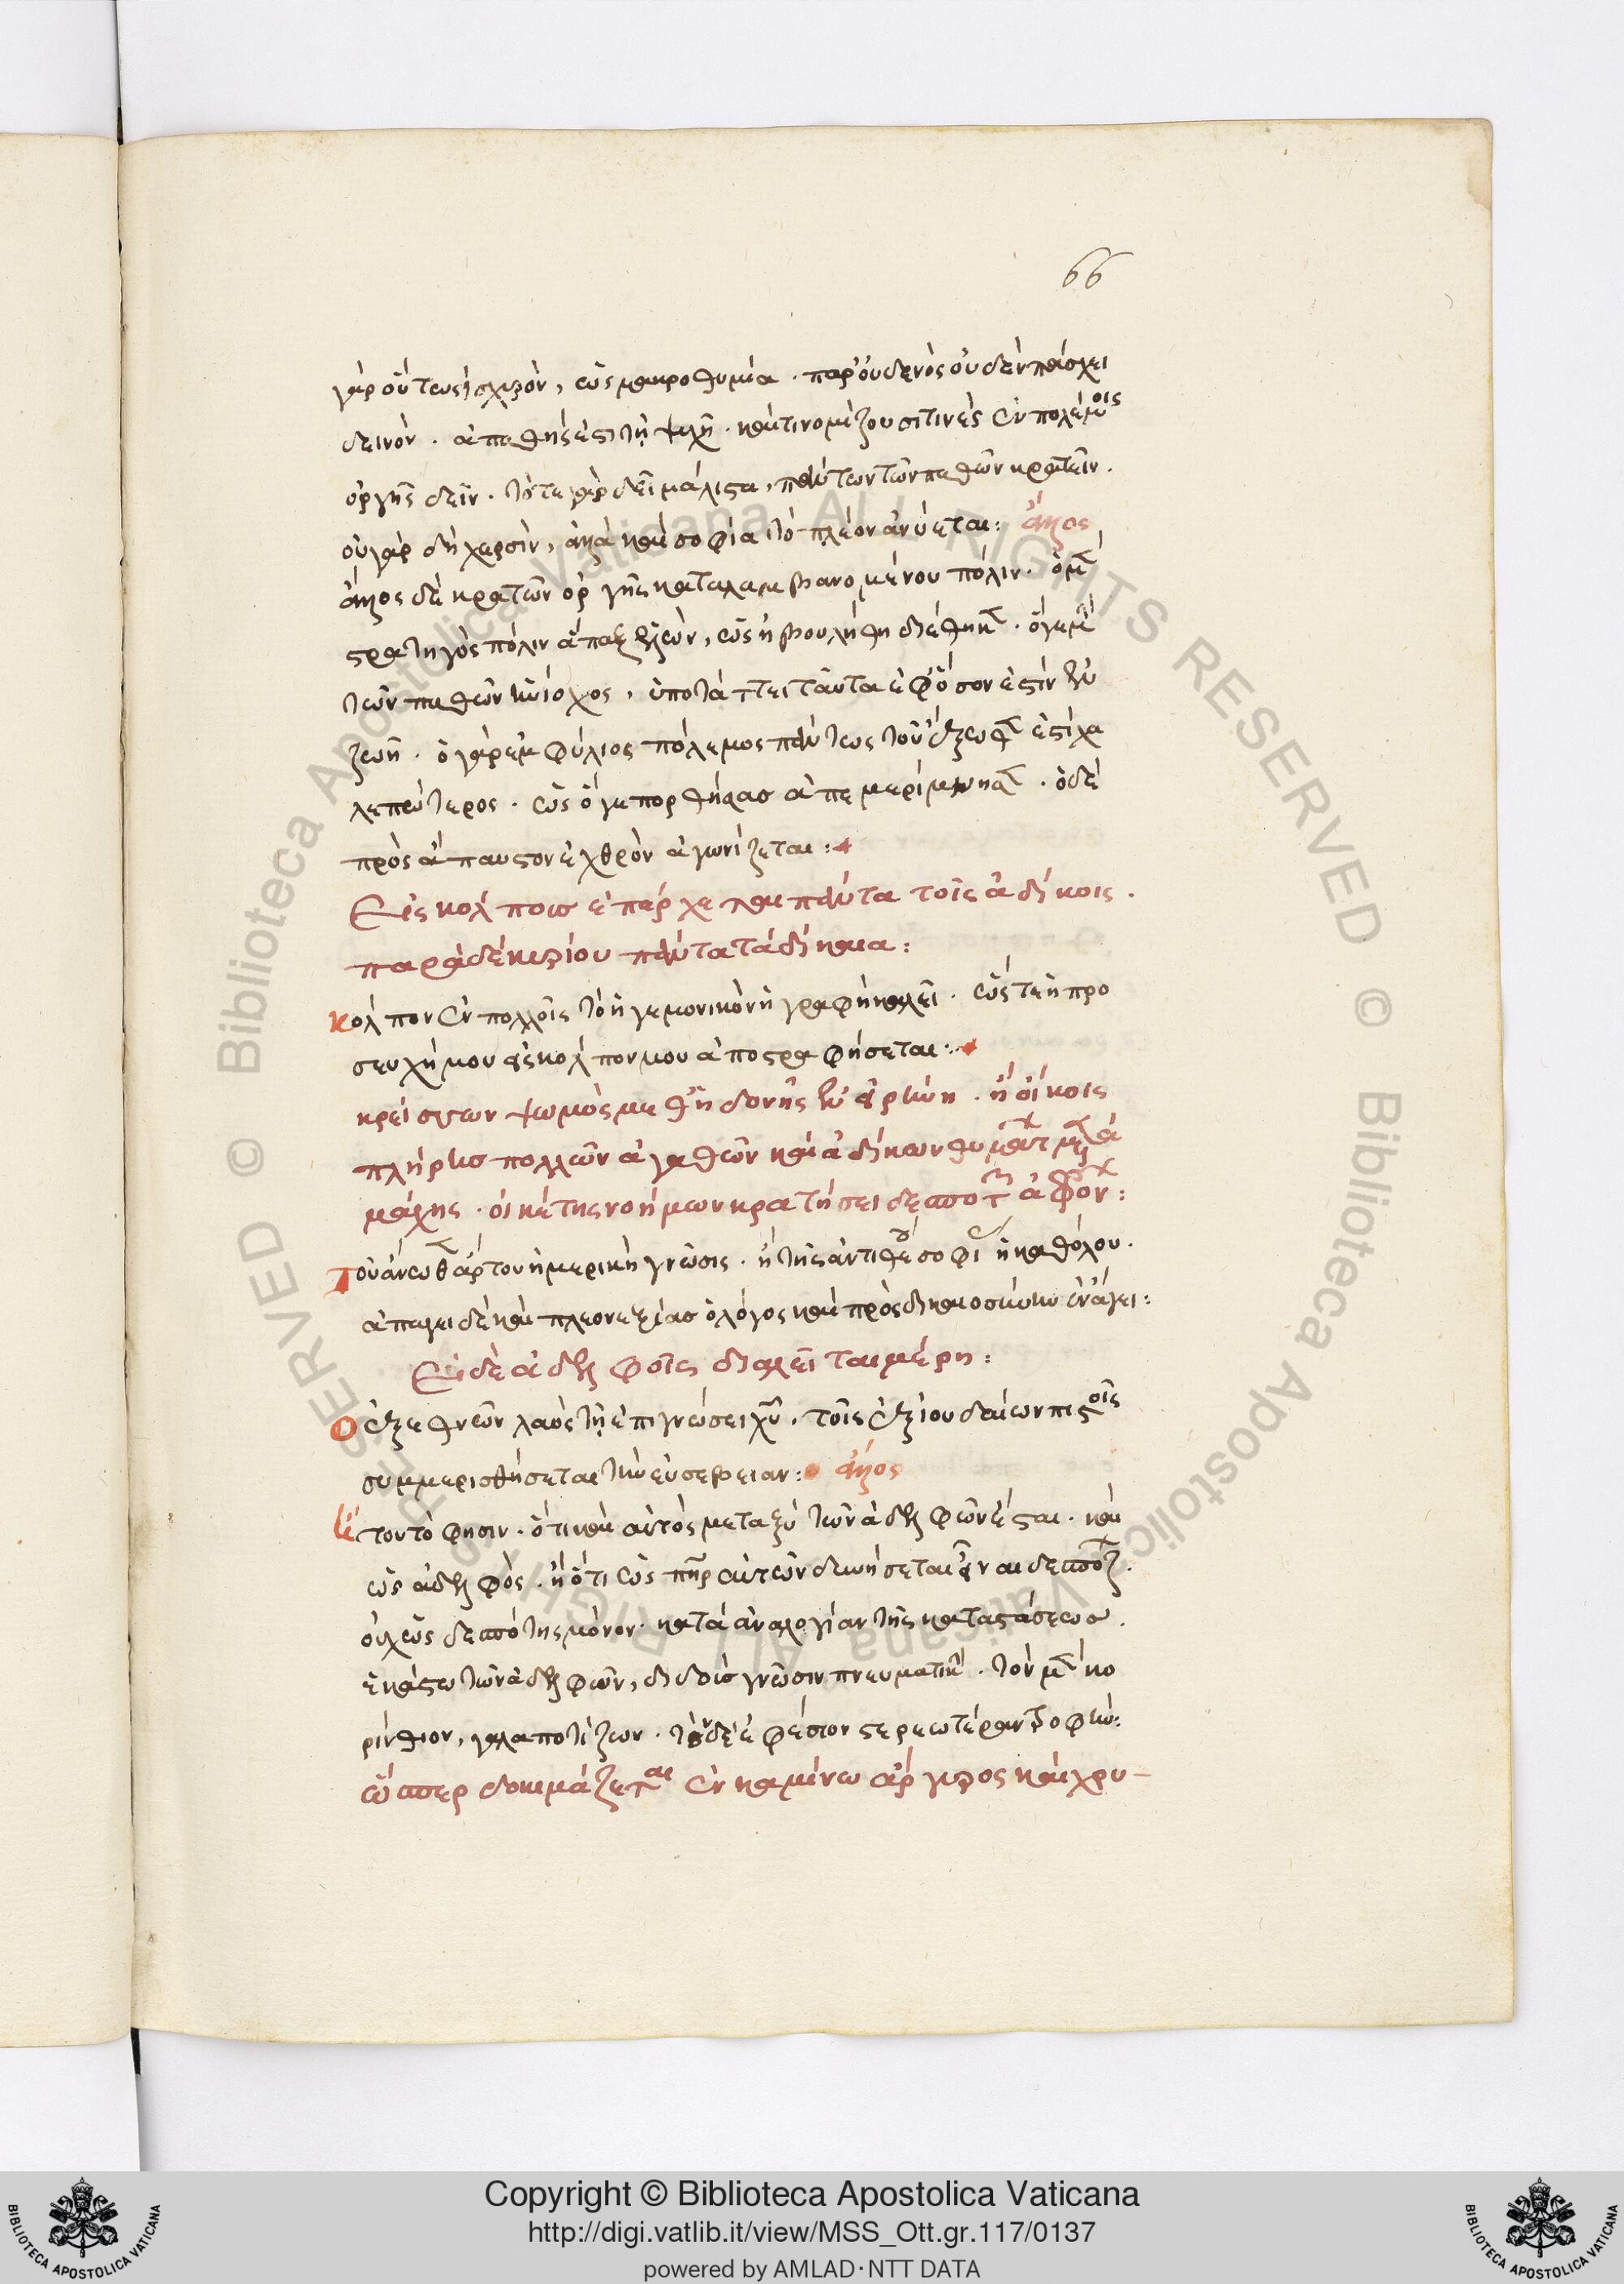 66
γὰρ οὕτως ἰσχυρὸν, ὡς μακροθυμία. παρ' οὐδενὸς οὐδὲν πάσχει
δεινόν. ἀπαθής ἐστι τῇ ψυχῇ. καίτι νομίζουσί τινες ἐν πολέμοις
ὀργῆς δεῖν. τότε γὰρ δεῖ μάλιστα, πάντων τῶν παθῶν κρατεῖν.
οὐ γὰρ δὴ χερσὶν, ἀλλὰ καὶ σοφία τὸ πλέον ἀνύεται: ἄλλος
ἄλλος δὲ κρατῶν ὀργῆς καταλαμβανομένου πόλιν. ὁ μὲν
στρατηγὸς πόλιν ἅπαξ ἑλὼν, ὡς ἠβουλήθη διέθηκεν. ὅγε μὴν
τῶν παθῶν ἡνίοχος, ὑποτάττει ταῦτα ἐφ' ὅσον ἐστὶν ἐν
ζωῇ. ὁ γὰρ ἐμφύλιος πόλεμος πάντως τοῦ ἔξωθεν ἐστὶ χα
λεπώτερος. ὡς ὅγε πορθήσας ἀπεμερίμνησεν. ὁ δὲ
πρὸς ἄπαυστον ἐχθρὸν ἀγωνίζεται:
Εἰς κόλπους ἐπέρχεται πάντα τοῖς ἀδίκοις.
παρὰ δὲ κυρίου πάντα τὰ δίκαια:
κόλπον ἐν πολλοῖς τὸ ἡγεμονικὸν ἡ γραφὴ καλεῖ. ὥστε ἡ προ
σευχή μου εἰς κόλπον μου ἀποστραφήσεται:
κρείσσων ψωμὸς μεθ' ἡδονῆς ἐν εἰρήνη. ἢ οἶκος
πλήρης πολλῶν ἀγαθῶν καὶ ἀδίκων θυμάτων μετὰ
μάχης. οἰκέτης νοήμων κρατήσει δεσποτῶν ἀφρόνων:
Τοῦ ἄνωθεν ἄρτου ἡ μερικὴ γνῶσις. ἢ τῆς ἀντιθέου σοφίας ἡ καθόλου.
ἀπάγει δὲ καὶ πλεονεξίας ὁ λόγος καὶ πρὸς δικαιοσύνην ἐνάγει:
Εἰ δὲ ἀδελφοῖς διαλεῖται μέρη:
Ὁ ἐξ ἐθνῶν λαὸς τῇ ἐπιγνώσει χυ, τοῖς ἐξ ἰουδαίων πιστοῖς
συμμερισθήσεται τὴν εὐσέβειαν: ἄλλος
τοντὸ φησιν. ὅτι καὶ αὐτὸς μεταξὺ τῶν ἀδελφῶν ἔσται. καὶ
ὡς ἀδελφὸς. ἢ ὅτι ὡς πηρ αὐτῶν
οὐχ ὡς δεσπότης μόνον. κατὰ ἀναλογίαν τῆς καταστάσεως.
ἑκάστω τῶν ἀδελφῶν, διδοὺς γνῶσιν πνευματικὴν. τὸν μὲν κο
ρίνθιον, γάλα ποτίζων. τὸν δὲ ἐφέσιον στερεωτέραν τροφὴν:
ὥσπερ δοκιμάζεται ἐν καμίνω ἄργυρος καὶ χρυ-
Copyright © Biblioteca Apostolica Vaticana
http://digi.vatlib.it/view/MSS_Ott.gr.117/0137
powered by AMLAD·NTT DATA